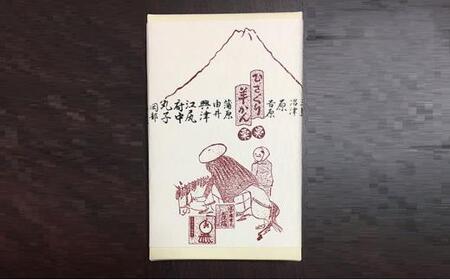 ひざくり
羊かん
沼津
原
吉原
蒲原
由井
興津
江尻
府中
丸子
岡部